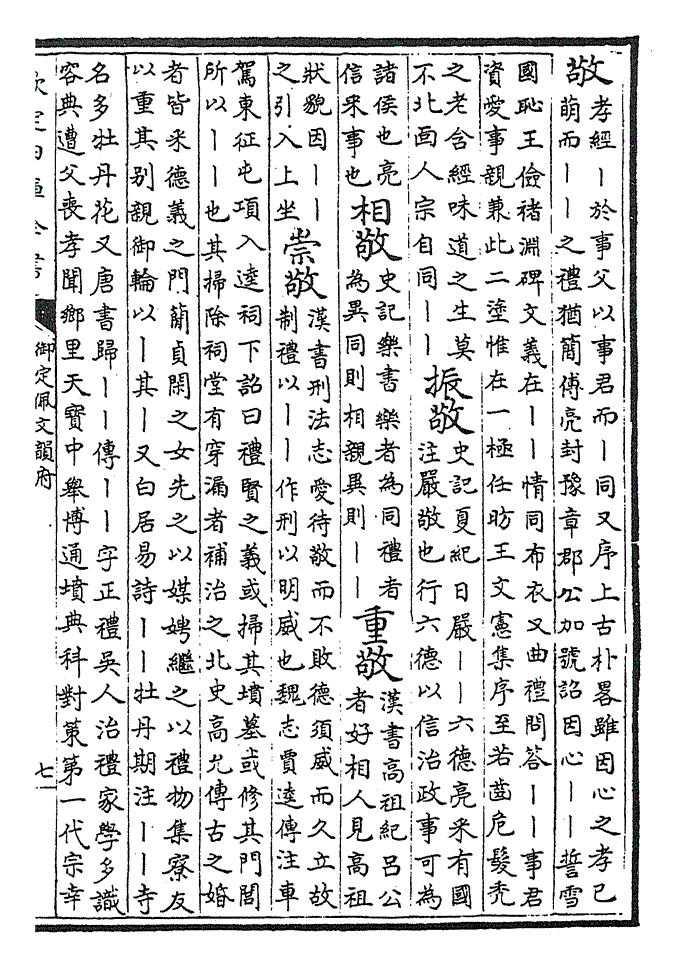 敬
孝經丨於事父以事君而丨同又序上古朴畧雖因心之孝已
萌而丨丨之禮猶簡傅亮封豫章郡公加號詔因心丨丨誓雪
國恥王儉褚淵碑文義在丨丨情同布衣又曲禮問答丨丨事君
資愛事親兼此二塗惟在一極任昉王文憲集序至若齒危髮禿
之老含經味道之生莫
不北面人宗自同丨丨
振敬
史記夏紀日嚴丨丨六德亮采有國
注嚴敬也行六德以信治政事可為
諸侯也亮
信采事也
相敬
史記樂書樂者為同禮者
為異同則相親異則丨丨
重敬
漢書高祖紀吕公
者好相人見高祖
狀貌因丨丨
之引入上坐
崇敬
漢書刑法志愛待敬而不敗德須威而久立故
制禮以丨丨作刑以明威也魏志賈逵傳注車
駕東征屯項入逵祠下詔曰禮賢之義或掃其墳墓或修其門閭
所以丨丨也其掃除祠堂有穿漏者補治之北史高允傳古之婚
者皆采德義之門蕑貞閑之女先之以媒娉繼之以禮物集寮友
以重其别親御輪以丨其丨又白居易詩丨丨牡丹期注丨丨寺
名多牡丹花又唐書歸丨丨傳丨丨字正禮吳人治禮家學多識
容典遭父喪孝聞鄉里天寳中舉博通墳典科對策第一代宗幸
欽定四庫全書
御定佩文韻府
七